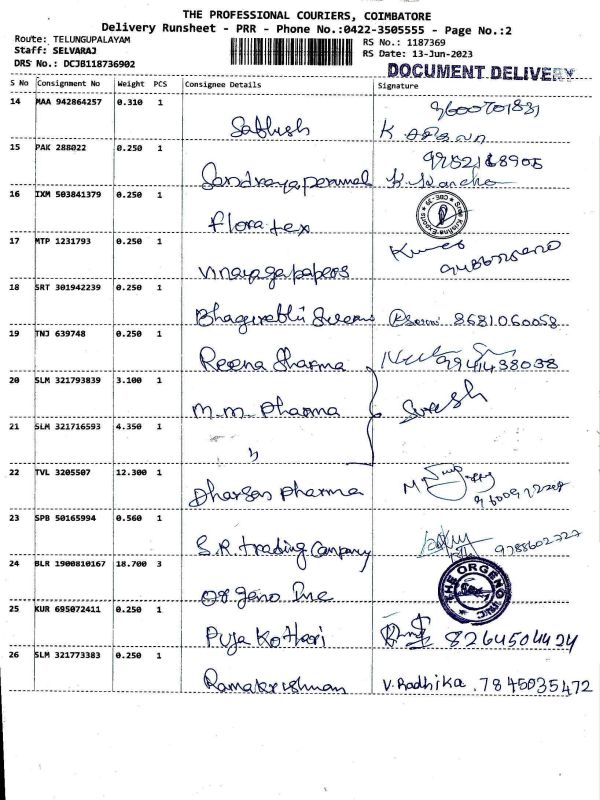 THE PROFESSIONAL COURIERS, COIMBATORE
Delivery Runsheet - PRR - Phone No.:0422-3505555 - Page No.:2
Route: TELUNGUPALAYAM RS No.: 1187369
Staff: SELVARAJ RS Date: 13-Jun-2023
DRS No.: DCJB118736902
DOCUMENT DELIVERY
S No Consignment No Weight PCS Consignee Details Signature
14 MAA 942864257 0.310 1
Sathish K
15 PAK 288022 0.250 1
16 IXM 503841379 0.250 1
Flora tex
17 MTP 1231793 0.250 1
Vinayaga papers
18 SRT 301942239 0.250 1
8681060058
19 TNJ 639748 0.250 1
Reena Sharma
20 SLM 321793839 3.100 1
M.M. Pharma Suresh
21 SLM 321716593 4.350 1
22 TVL 3205507 12.300 1
Pharma
23 SPB 50165994 0.560 1
S.R. trading Company
24 BLR 1900810167 18.700 3
THE ORGENO INC
Orgeno Inc
25 KUR 695072411 0.250 1
Puja Kothari 8264504424
26 SLM 321773383 0.250 1
Ramakrishnan V. Radhika. 7845035472